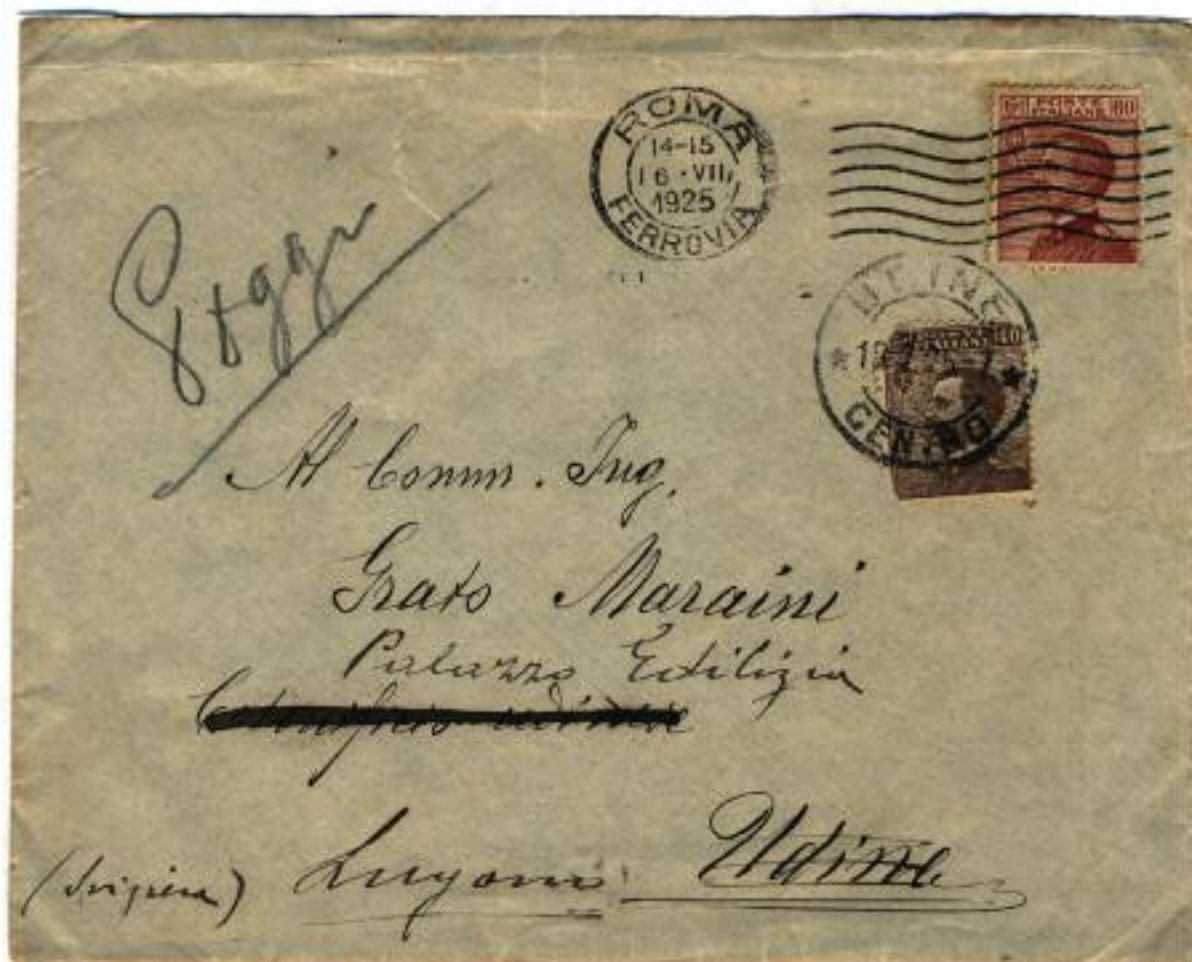 ROMA
14-15
16·VII
1925
FERROVIA
60
UDINE
40
CENTRO
Al Comm. Ing.
Grato Maraini
Palazzo Edilizia
Udine
(Svizzera) Lugano